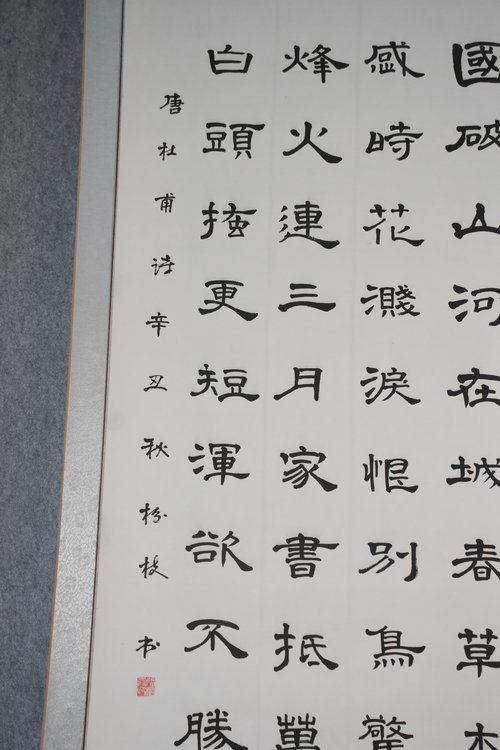 國破山河在城春草木
感時花濺淚恨別鳥驚
烽火連三月家書抵萬
白頭搔更短渾欲不勝
唐杜甫诗辛丑秋枝书